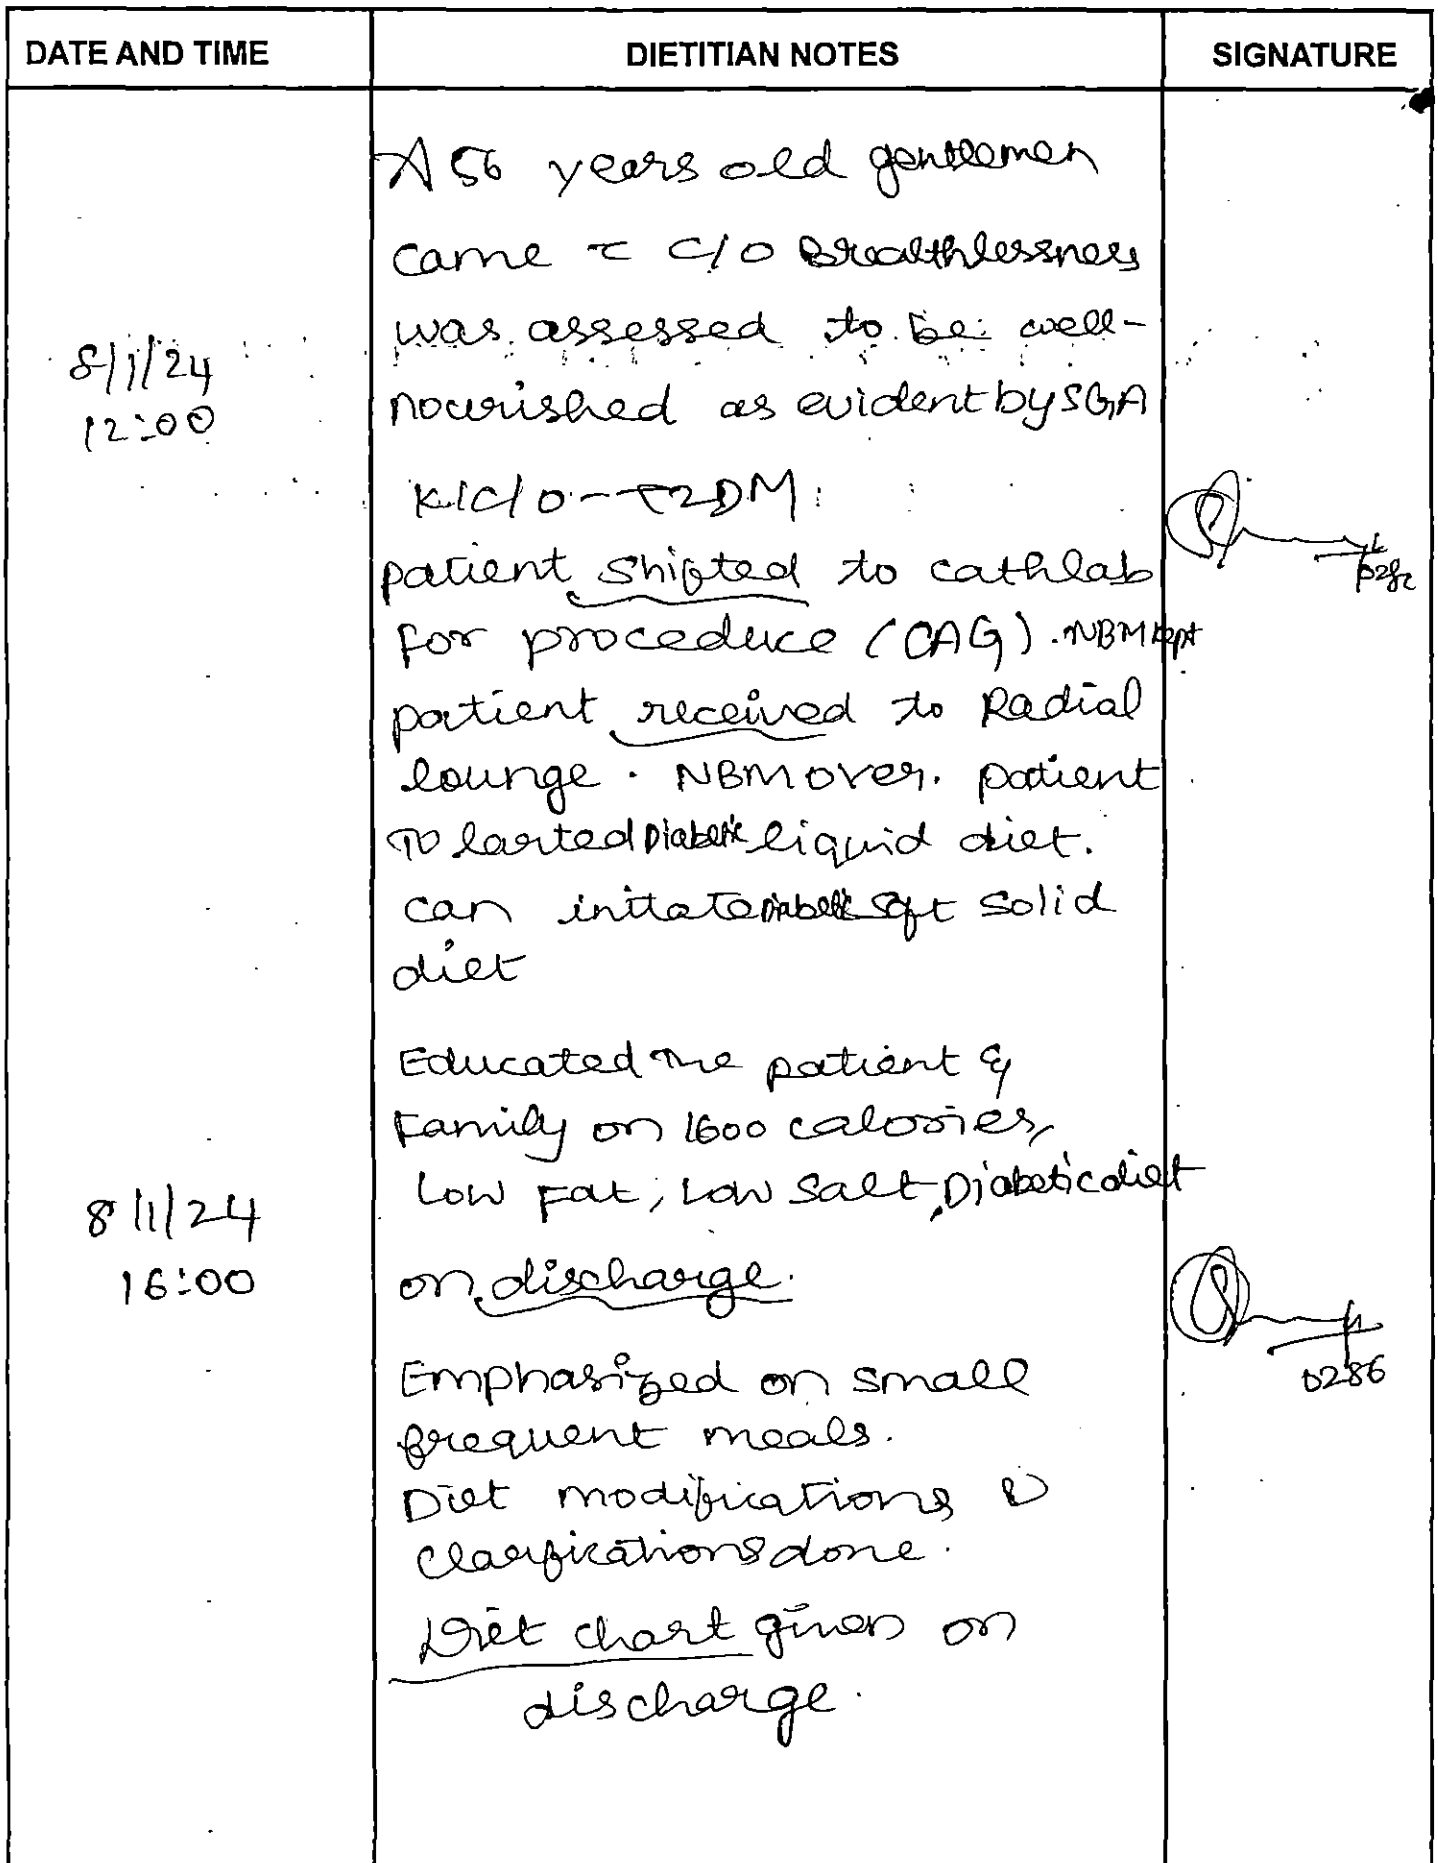 DATE AND TIME DIETITIAN NOTES SIGNATURE
A 56 years old gentleman
came c C/O Breathlessness
was assessed to be well-
8/1/24
nourished as evident by SGA
12:00
K/C/O - T2DM
patient shifted to cathlab
for proceduce (CAG). NBM kept
patient received to Radial
lounge. NBM over. patient
Diabetic liquid diet.
can initate Diabetic soft solid
diet
Educated the patient &
Family on 1600 calories,
Low Fat, Low Salt, Diabetic diet
8/1/24
on discharge.
16:00
Emphasized on small
0286
frequent meals.
Diet modifications &
clarfications done.
Diet chart given on
discharge.